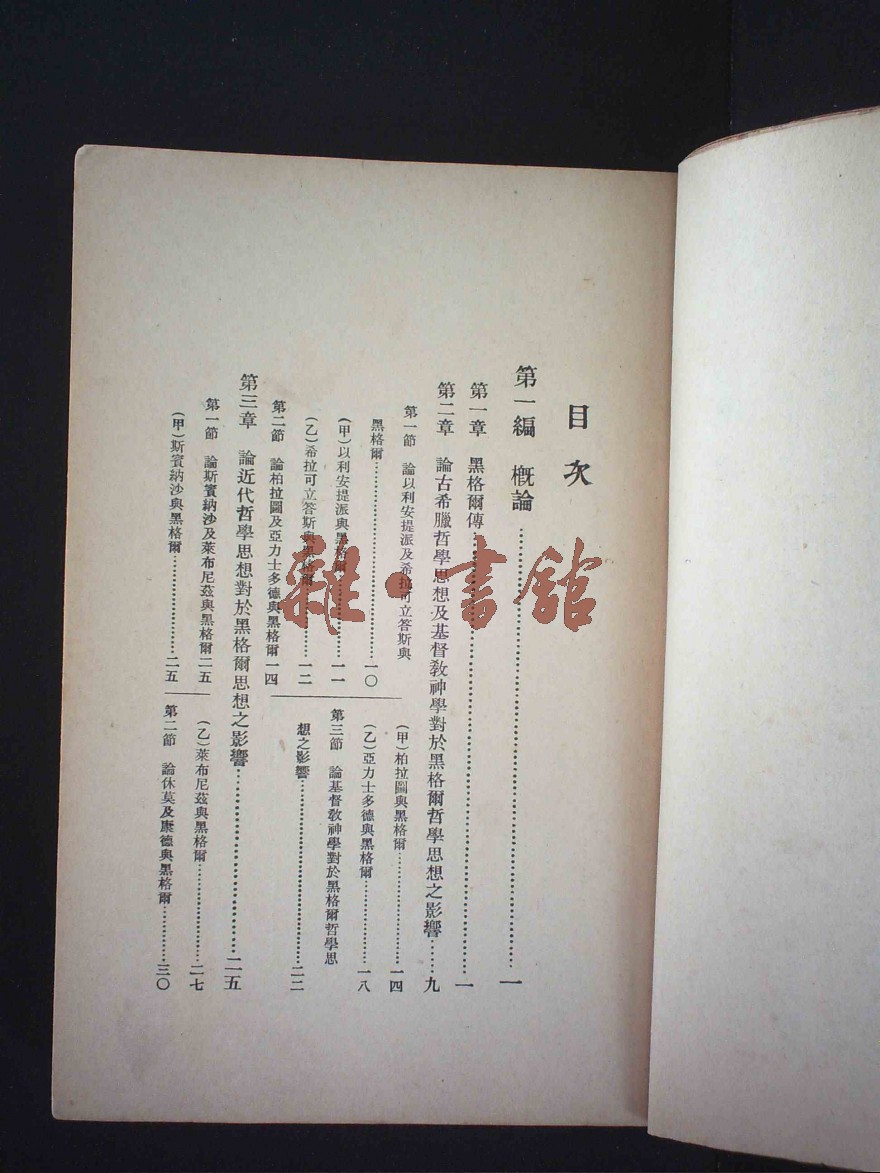 目次
第一編　概論…………………………一
第一章　黑格爾傳…………………………一
第二章　論古希臘哲學思想及基督教神學對於黑格爾哲學思想之影響……九
第一節　論以利安提派及希拉可立答斯與
黑格爾…………………………一〇
(甲)以利安提派與黑格爾…………………一一
(乙)希拉可立答斯與黑格爾………………一二
第二節　論柏拉圖及亞力士多德與黑格爾一四
(甲)柏拉圖與黑格爾…………………一四
(乙)亞力士多德與黑格爾………………一八
第三節　論基督教神學對於黑格爾哲學思
想之影響…………………………二二
第三章　論近代哲學思想對於黑格爾思想之影響…………………………二五
第一節　論斯賓納沙及萊布尼茲與黑格爾二五
(甲)斯賓納沙與黑格爾…………………二五
(乙)萊布尼茲與黑格爾…………………二七
第二節　論休莫及康德與黑格爾…………三〇
雜·書館